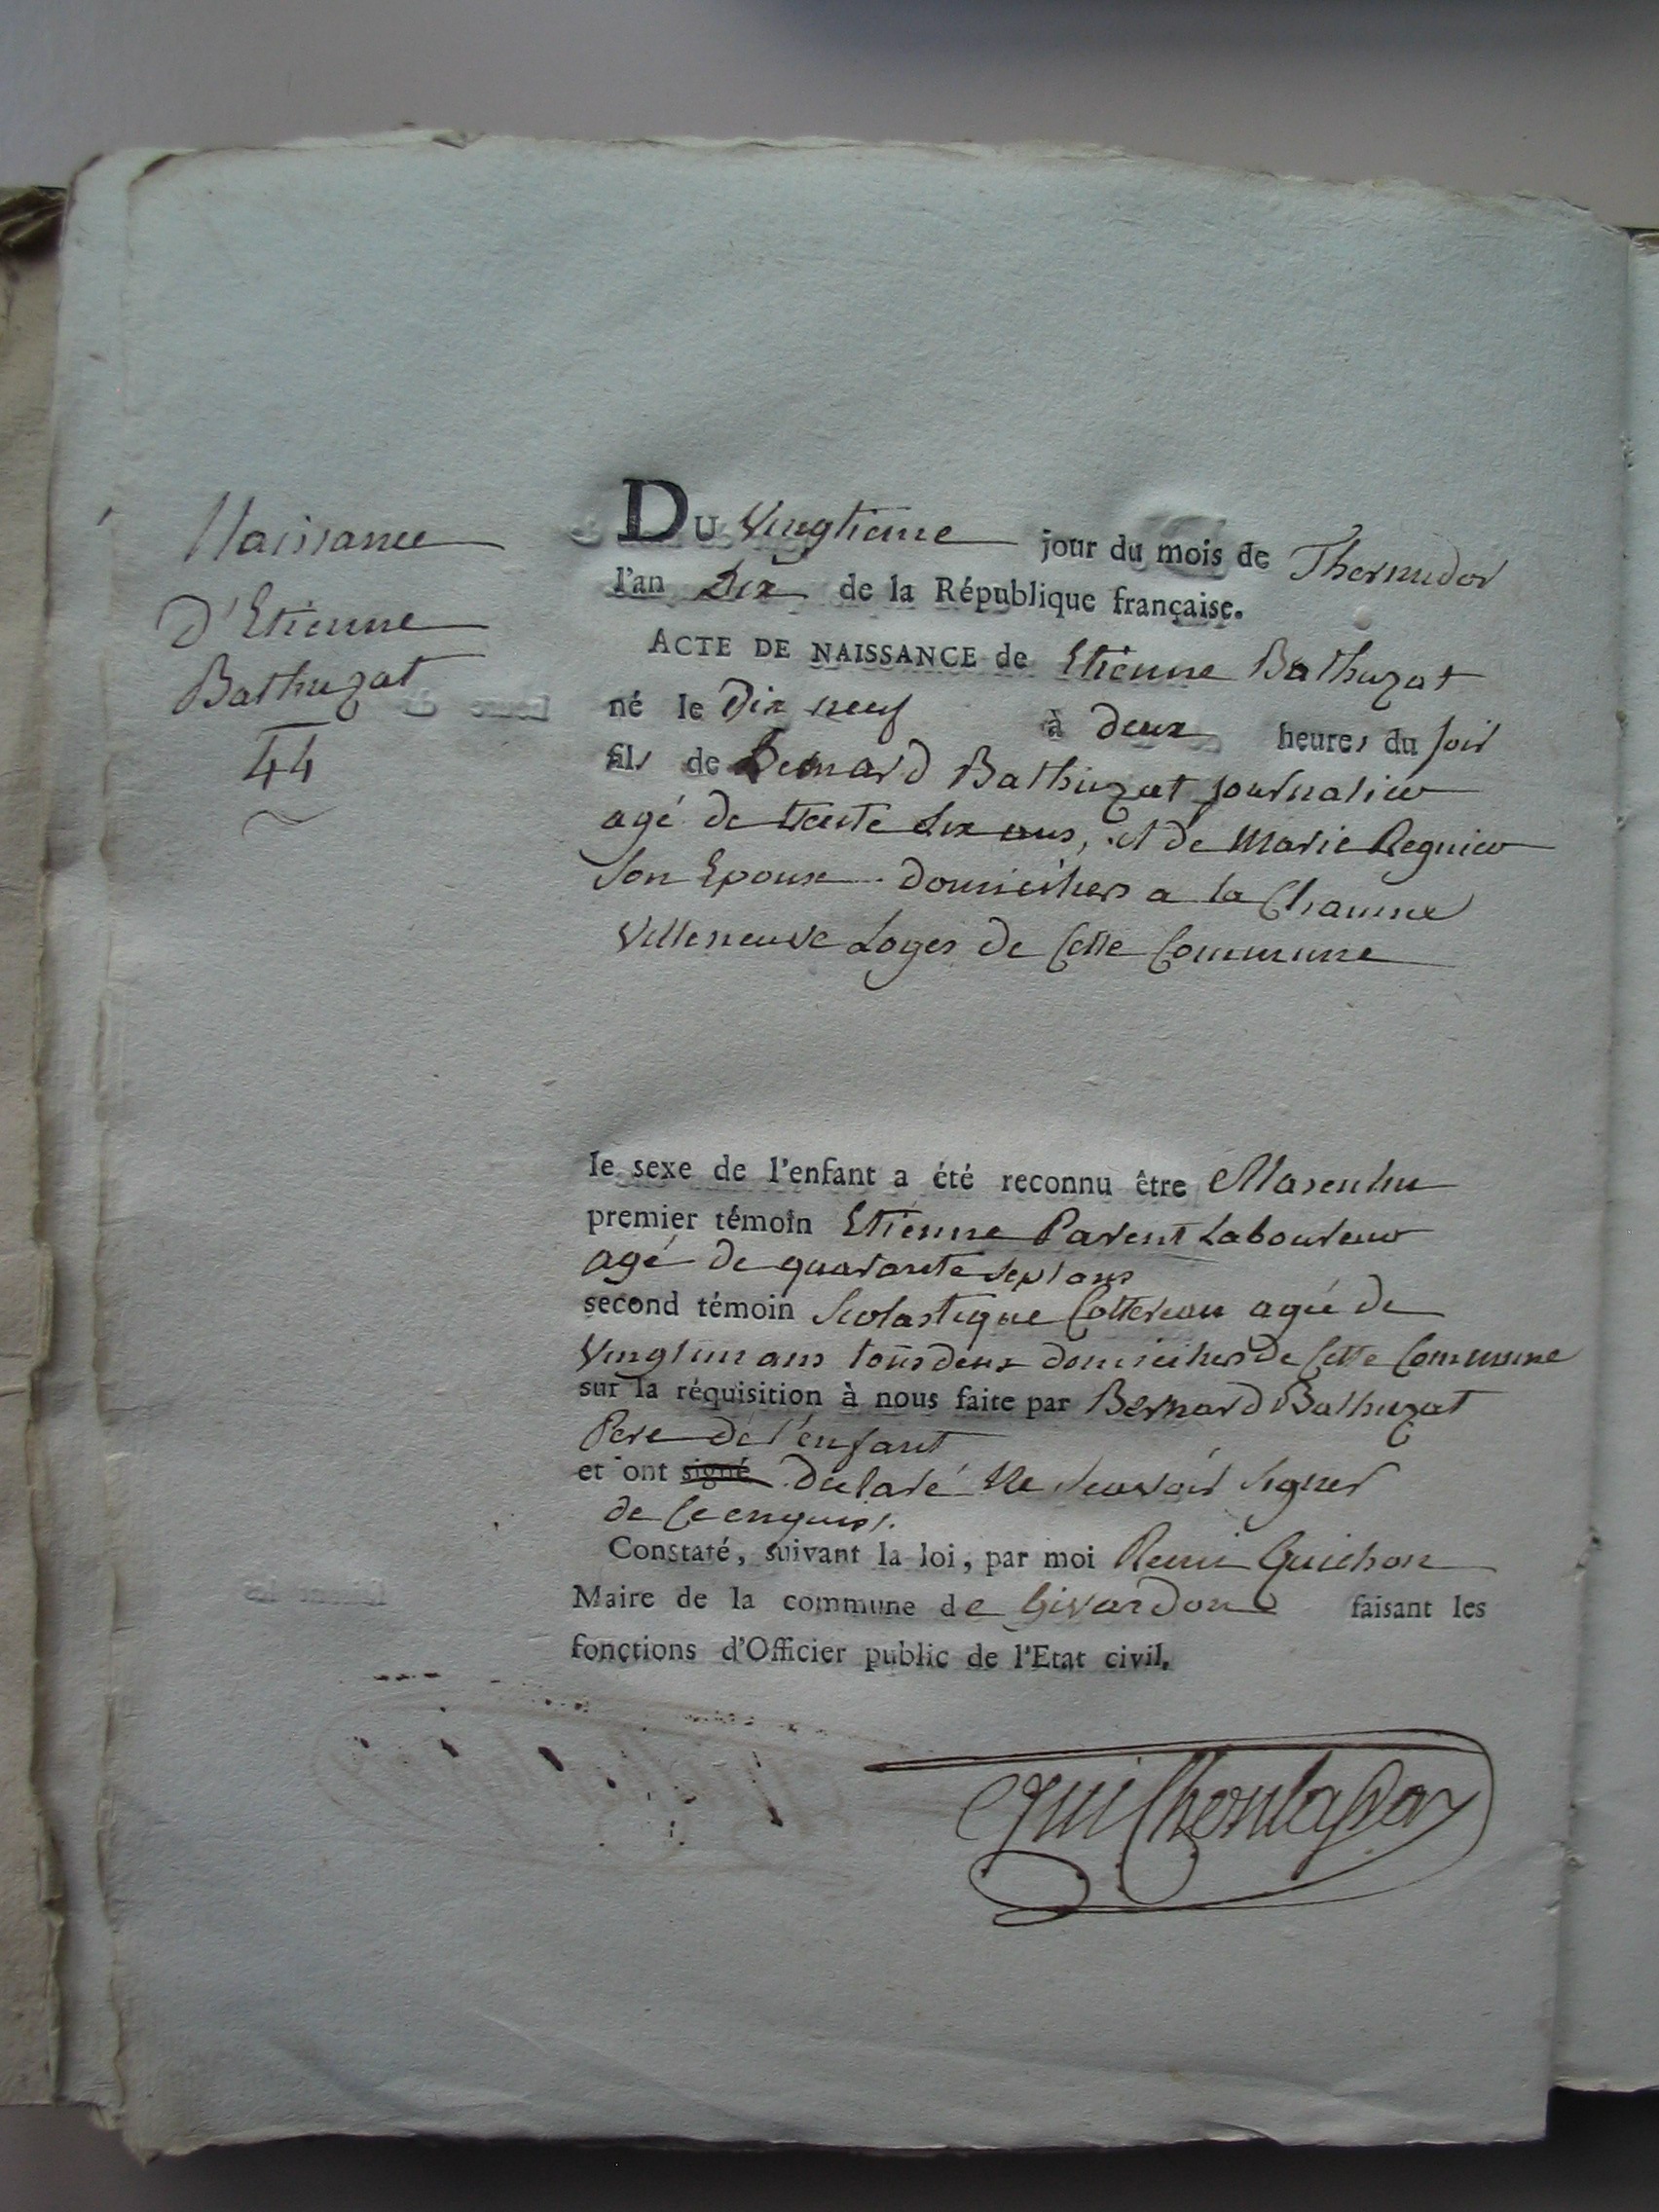 Naissance
d'Etienne
Bathuzat
44
DU Vingtieme jour du mois de Thermidor
l'an Dix de la République française.
ACTE DE NAISSANCE de Etienne Bathuzat
né le Dix neuf à deux heures du soir
fils de Bernard Bathuzat journalier
agé de trente six ans, et de Marie Regnier
son Epouse domicilies a la Chaume
Villeneuve Loges de cette Commune
le sexe de l'enfant a été reconnu être Masculin
premier témoin Etienne Parent Laboureur
agé de quarante sept ans
second témoin Scolastique Cottereau agée de
Vingt un ans tous deux domicilies de cette Commune
sur la réquisition à nous faite par Bernard Bathuzat
Pere de l'enfant
et ont signé declaré Ne scavoir signer
de ce enquis.
Constaté, suivant la loi, par moi Remi Guichon
Maire de la commune de Givardon faisant les
fonctions d'Officier public de l'Etat civil.